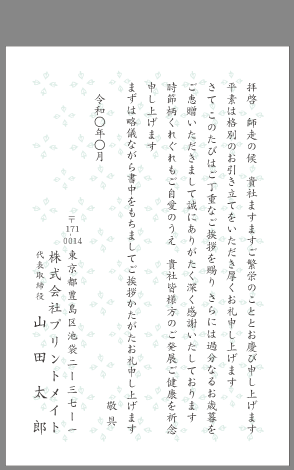 拝啓　師走の候　貴社ますますご繁栄のこととお慶び申し上げます
平素は格別のお引き立てをいただき厚くお礼申し上げます
さて このたびはご丁重なご挨拶を賜り さらには過分なるお歳暮を
ご恵贈いただきまして誠にありがたく深く感謝いたしております
時節柄くれぐれもご自愛のうえ　貴社皆様方のご発展ご健康を祈念
申し上げます
まずは略儀ながら書中をもちましてご挨拶かたがたお礼申し上げます
敬具
令和〇年〇月
〒171 0014
東京都豊島区池袋二ー三七ー一
株式会社プリントメイト
代表取締役　山田太郎